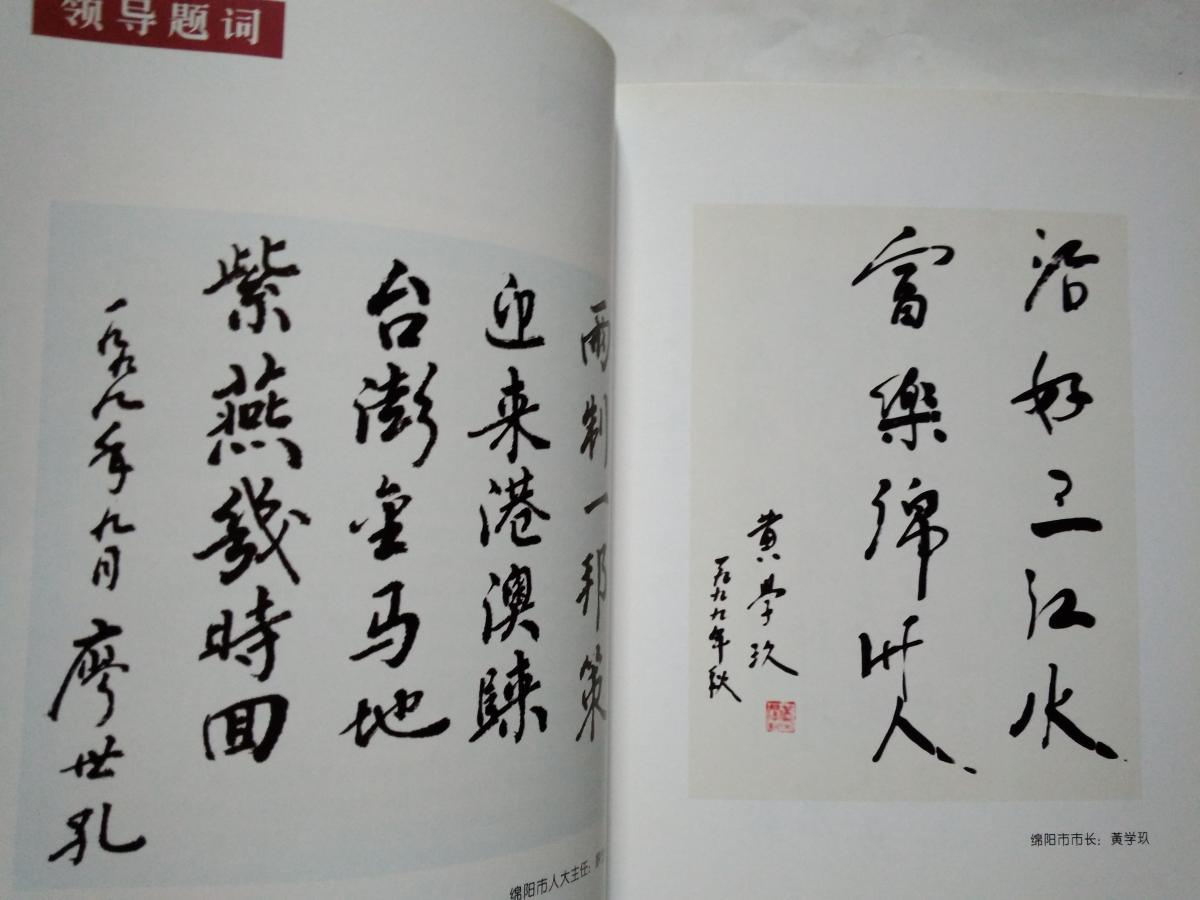 领导题词
兩制一邦策
迎来港澳歸
台澎金马地
紫燕幾時回
一九九八年九月 廖世孔
绵阳市人大主任：
治好三江水
富樂綿州人
黄学玖
一九九九年秋
绵阳市市长：黄学玖